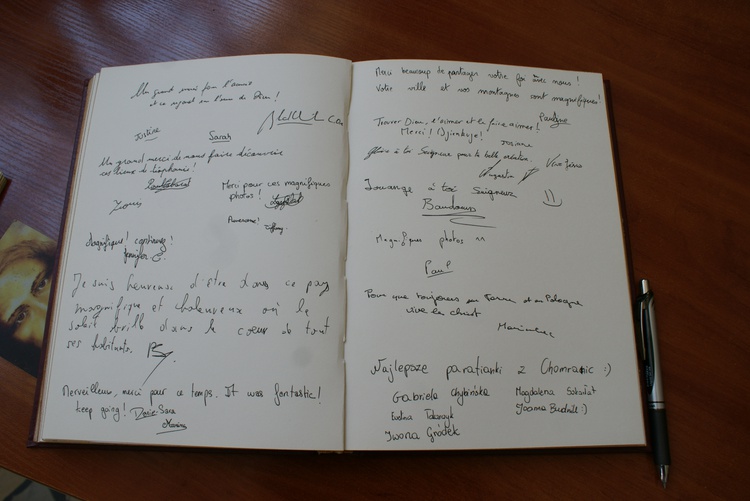 Un grand merci pour l'amour
et ce regard sur l'âme de Dieu !
Justine
Sarah
Un grand merci de nous faire découvrir
ces lieux de
Merci pour ces magnifiques
photos !
Louis
Awesome !
Tiffany
Magnifique ! continuez !
Jennifer
Je suis heureuse d'être dans ce pays
magnifique et chaleureux où le
soleil brille dans le coeur de tout
ses habitants.
Merveilleux, merci pour ce temps. It was fantastic !
keep going !
Sara
Merci beaucoup de partager votre foi avec nous !
Votre ville et vos montagnes sont magnifiques !
Trouver Dieu, l'aimer et le faire aimer !
Merci ! Djinkuje !
Josiane
Gloire à toi Seigneur pour ta belle création.
Augustin
Louange à toi Seigneur
Baudouin
Magnifiques photos ^^
Paul
Pour que toujours en France et en Pologne
vive le Christ
Najlepsze parafianki z Chomranic :)
Gabriela
Magdalena
Ewelina
Joanna Budnik :)
Iwona Gródek